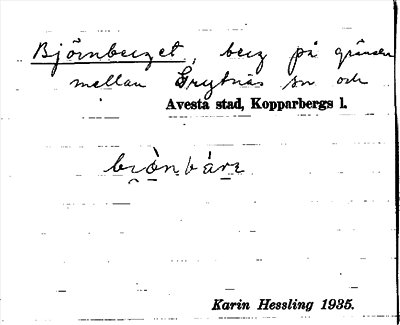 Björnberget, berg på gränsen
mellan Grytnäs sn och
Avesta stad, Kopparbergs l.
Karin Hessling 1935.